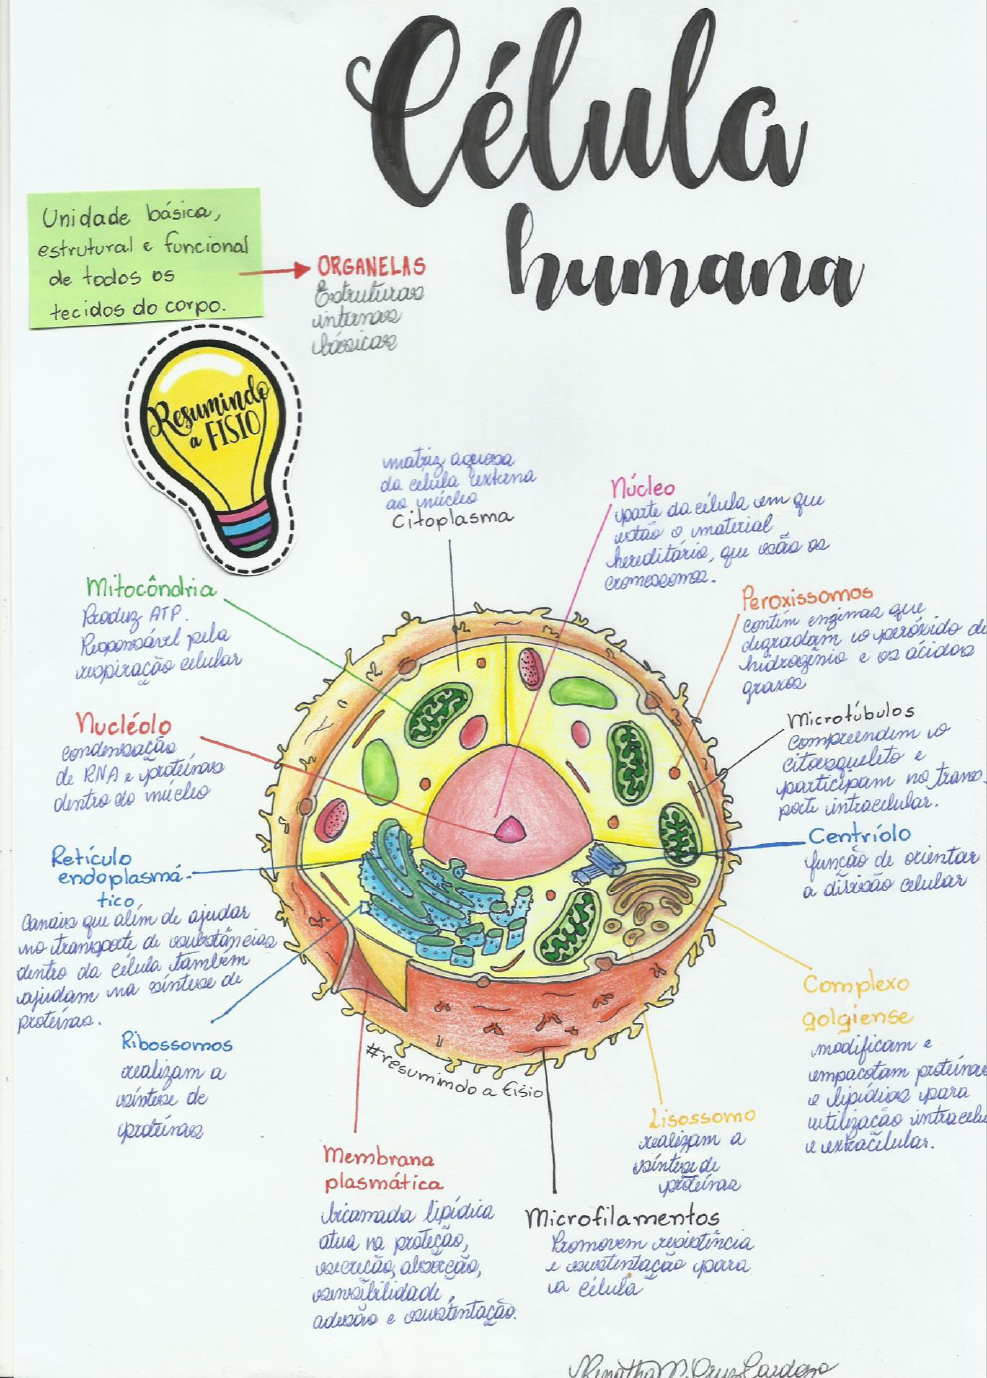 Célula
humana
Unidade básica,
estrutural e funcional
de todos os
tecidos do corpo.
ORGANELAS
Estruturas
internas
básicas
Resumindo
a FISIO
matriz aquosa
da célula externa
ao núcleo
Citoplasma
Núcleo
parte da célula em que
estão o material
hereditário, que são os
cromossomos.
Mitocôndria
Produz ATP.
Responsável pela
respiração celular
Peroxissomos
contém enzimas que
degradam o peróxido de
hidrogênio e os ácidos
graxos
Nucléolo
condensação
de RNA e proteínas
dentro do núcleo
Microtúbulos
Compreendem o
citoesqueleto e
participam no trans-
porte intracelular.
Centríolo
função de orientar
a divisão celular
Retículo
endoplasmá-
tico
Canais que além de ajudar
no transporte de substâncias
dentro da célula também
ajudam na síntese de
proteínas.
Ribossomos
realizam a
síntese de
proteínas
Complexo
golgiense
modificam e
empacotam proteínas
e lipídios para
utilização intracelu
e extracelular.
#resumindo a fisio
Lisossomo
realizam a
síntese de
proteínas
Membrana
plasmática
bicamada lipídica
atua na proteção,
secreção, absorção,
sensibilidade,
adesão e sustentação.
Microfilamentos
Promovem resistência
e sustentação para
a célula
Cruz Cardoso